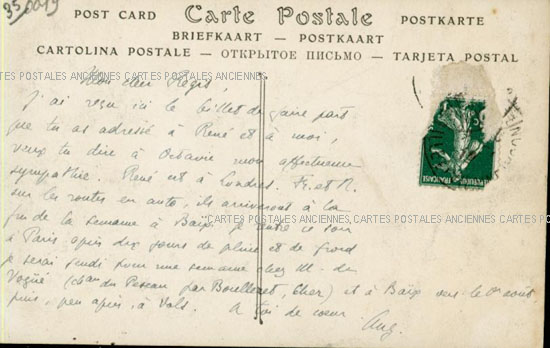 350019
POST CARD Carte Postale POSTKARTE
BRIEFKAART — POSTKAART
CARTOLINA POSTALE — ОТКРЫТОЕ ПИСЬМО — TARJETA POSTAL
CARTES POSTALES ANCIENNES CARTES POSTALES ANCIENNES CARTES POSTALES ANCIENNES
Mon cher Régis,
J'ai reçu ici le billet de faire part
que tu as adressé à René et à moi,
veux tu dire à Octavie mon affectueuse
sympathie. René est à Londres. Fr. et N.
sur les routes en auto, ils arriverons à la
fin de la semaine à Baix. Je rentre ce soir
CARTES POSTALES ANCIENNES, CARTES POSTALES ANCIENNES CARTES POS
à Paris après dix jours de pluie et de froid
je serai jeudi pour une semaine chez M. de
Vogüé (chau du Pezeau par Boulleret, Cher) et à Baix vers le 1er août
puis, peu après, à Vals. A toi de coeur
Aug.